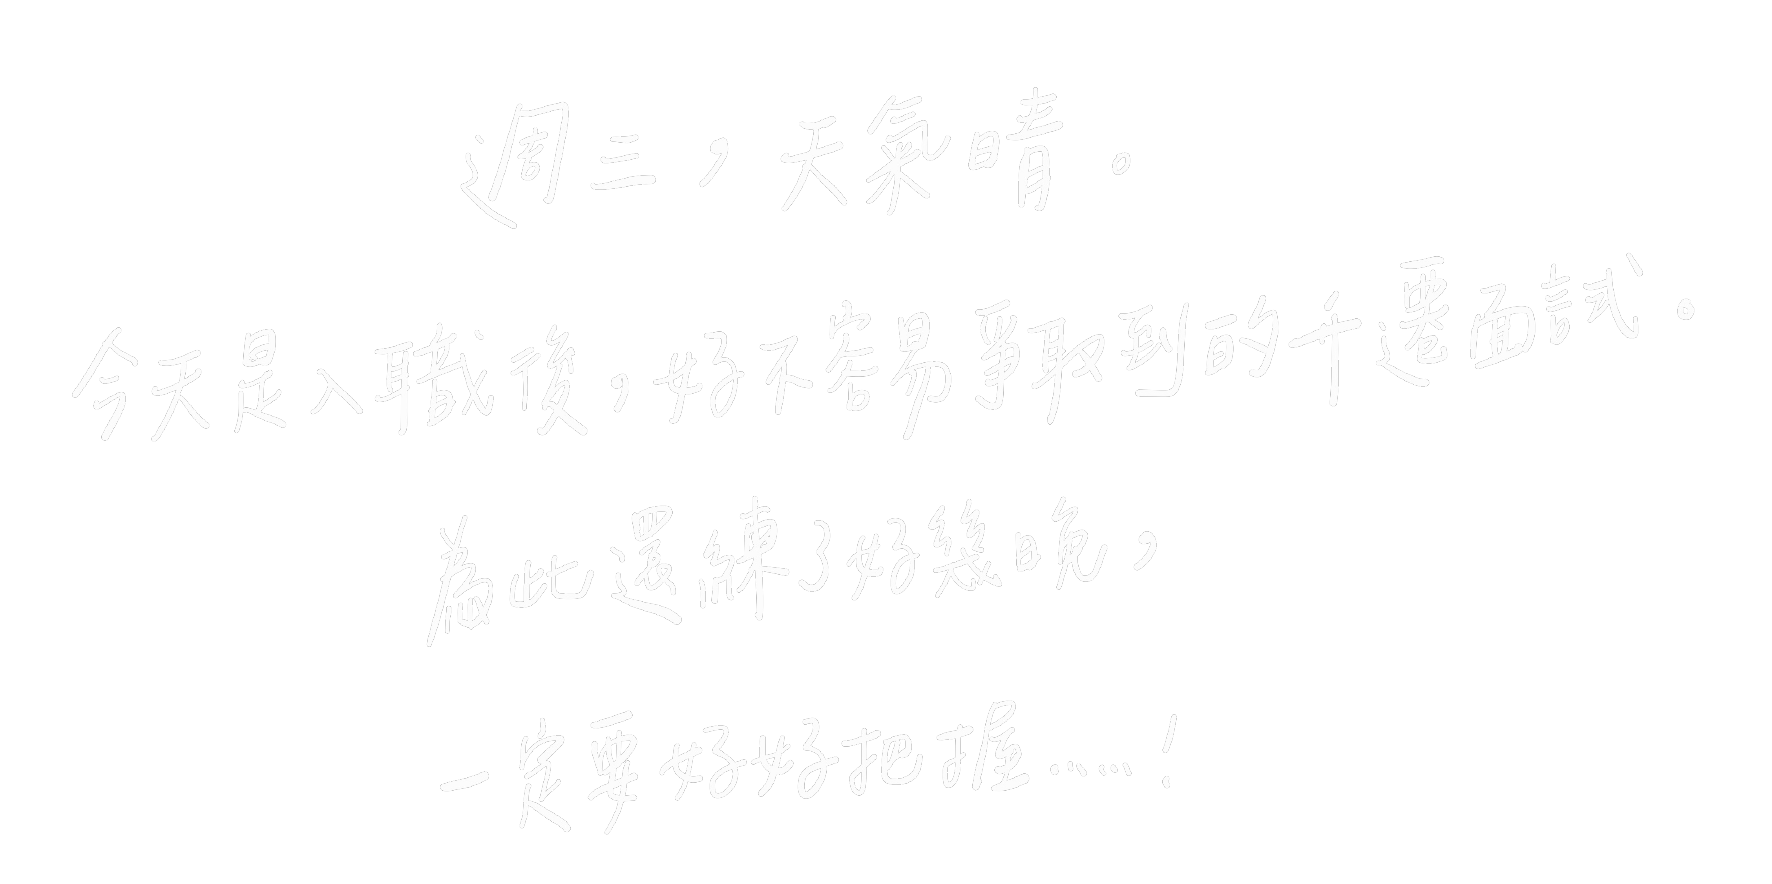 週三，天氣晴。
今天是入職後，好不容易爭取到的升遷面試。
為此還練了好幾晚，
一定要好好把握……！